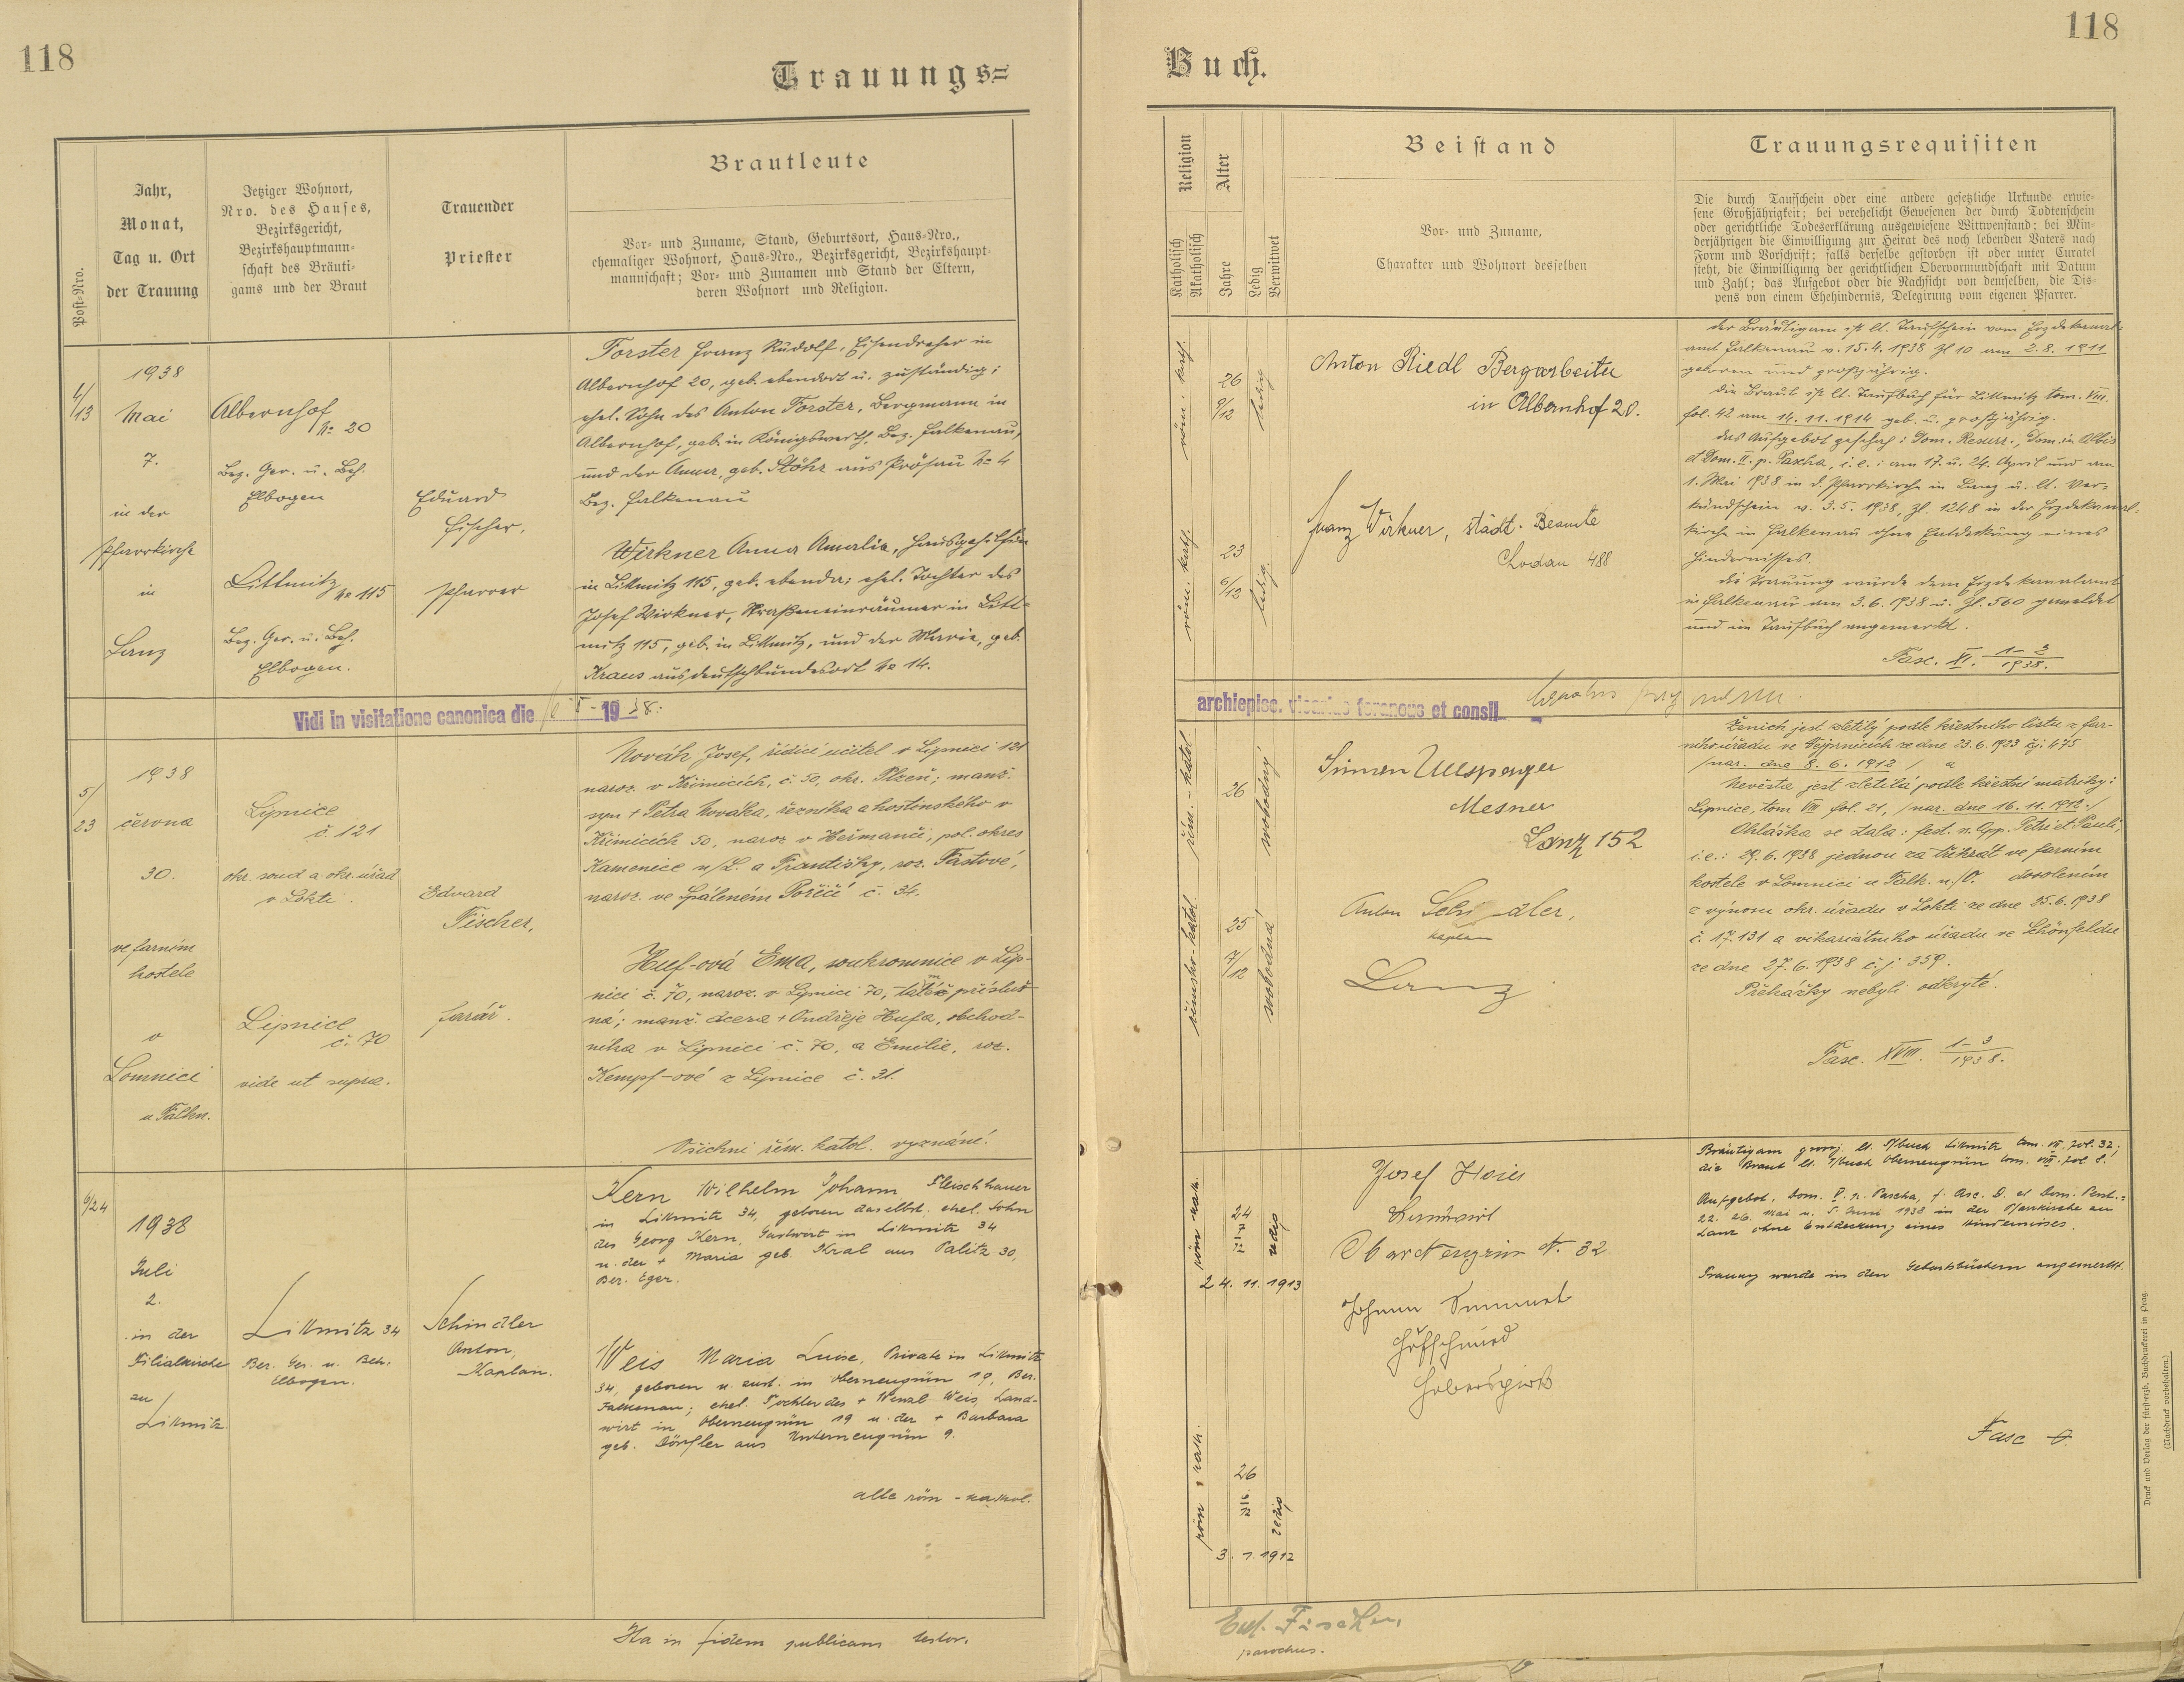 118
Trauungs=
Post-Nro.
Jahr,
Monat,
Tag u. Ort
der Trauung
Jetziger Wohnort,
Nro. des Hauses,
Bezirksgericht,
Bezirkshauptmann-
schaft des Bräuti-
gams und der Braut
Trauender
Priester
Brautleute
Vor- und Zuname, Stand, Geburtsort, Haus-Nro.,
ehemaliger Wohnort, Haus-Nro., Bezirksgericht, Bezirkshaupt-
mannschaft; Vor- und Zunamen und Stand der Eltern,
deren Wohnort und Religion.
4/13
1938
Mai
7.
in der
Pfarrkirche
in
Lanz
Albernhof
№ 20
Bez. Ger. u. Beh.
Elbogen
Littmitz № 115
Bez. Ger. u. Beh.
Elbogen.
Eduard
Fischer,
Pfarrer
Forster Franz Rudolf, Eisendreher in
Albernhof 20, geb. ebendort u. zuständig;
ehel. Sohn des Anton Forster, Bergmann in
Albernhof, geb. in Königswerth, Bez. Falkenau,
und der Anna, geb. Stöhr aus Prösau № 4
Bez. Falkenau
Wirkner Anna Amalia, Hausgehilfin
in Littmitz 115, geb. ebenda; ehel. Tochter des
Josef Wirkner, Straßeneinräumer in Litt-
mitz 115, geb. in Littmitz, und der Marie, geb.
Kraus aus Deutschbundesort № 14.
Vidi in visitatione canonica die 19 38.
5/23
1938
června
30.
ve farním
kostele
v
Lomnici
u Falkn.
Lipnice
č. 121
okr. soud a okr. úřad
v Lokti
Lipnice
č. 70
vide ut supra.
Edvard
Fischer,
farář.
Novák Josef, řídící učitel v Lipnici 121
naroz. v Křimicích, č. 50, okr. Plzeň; manž.
syn + Petra Nováka, řezníka a hostinského v
Křimicích 50, naroz v Heřmanči, pol. okres
Kamenice n/L. a Františky, roz. Fastové,
naroz. ve Spáleném Poříčí č. 34.
Huf-ová Ema, soukromnice v Lip-
nici č. 70, naroz. v Lipnici 70, přísluš
ná; manž. dcera + Ondřeje Hufa, obchod-
níka v Lipnici č. 70, a Emilie, roz.
Kempf-ové z Lipnice č. 31.
Všichni řím. katol. vyznání.
6/24
1938
Juli
2.
in der
Filialkirche
zu
Littmitz.
Littmitz 34
Bez. Ger. u. Beh.
Elbogen.
Schindler
Anton,
Kaplan.
Kern Wilhelm Johann Fleischhauer
in Littmitz 34, geboren daselbst. ehel. Sohn
des Georg Kern, Gastwirt in Littmitz 34
u. der + Maria geb. Kral aus Palitz 30,
Bez. Eger.
Weis Maria Luise, Private in Littmitz
34, geboren u. zust. in Oberneugrün 19, Bez.
Falkenau; ehel. Tochter des + Wenzl Weis, Land-
wirt in Oberneugrün 19 u. der + Barbara
geb. Dörfler aus Unterneugrün 9.
alle röm-kathol.
Ita in fidem publicam testor.
118
Buch.
Religion
Katholisch
Akatholisch
Alter
Jahre
Ledig
Verwitwet
Beistand
Vor- und Zuname,
Charakter und Wohnort desselben
Trauungsrequisiten
Die durch Taufschein oder eine andere gesetzliche Urkunde erwie-
sene Großjährigkeit; bei verehelicht Gewesenen der durch Todtenschein
oder gerichtliche Todeserklärung ausgewiesene Wittwenstand; bei Min-
derjährigen die Einwilligung zur Heirat des noch lebenden Vaters nach
Form und Vorschrift; falls derselbe gestorben ist oder unter Curatel
steht, die Einwilligung der gerichtlichen Obervormundschaft mit Datum
und Zahl; das Aufgebot oder die Nachsicht von demselben, die Dis-
pens von einem Ehehindernis, Delegirung vom eigenen Pfarrer.
röm. kath.
26
9/12
ledig
röm. kath.
23
6/12
ledig.
Anton Riedl Bergarbeiter
in Albernhof 20.
Franz Wirkner, städt. Beamte
Chodau 488
der Bräutigam ist lt. Taufschein vom Erzdekanal-
amt Falkenau v. 15.4.1938 Zl 10 am 2.8.1911
geboren und großjährig.
die Braut ist lt. Taufbuch für Littmitz tom. VIII.
fol. 42 am 14.11.1914 geb. u. großjährig.
das Aufgebot geschah: Dom. Resurr., Dom. in Albis
et Dom. II. p. Pascha, i. e.: am 17. u. 24. April und am
1. Mai 1938 in d. Pfarrkirche in Lanz u. lt. Ver-
kündschein v. 3.5.1938, Zl. 1248 in der Erzdekanal-
kirche in Falkenau ohne Entdeckung eines
Hindernisses.
die Trauung wurde dem Erzdekanalamt
in Falkenau am 3.6.1938 u. Zl. 560 gemeldet
und im Taufbuch angemerkt.
Fasc. XI. 1-3/1938.
archiepisc. vicarius foraneus et consil
řím.-katol.
26
svobodný
římsko-katol.
25
7/12
svobodná
Simon Ullsperger
Mesner
Lanz 152
Anton Schindler,
Kaplan
Lanz
Ženich jest zletilý podle křestního listu z far-
ního úřadu ve Vejprnicích ze dne 23.6.1933 čj. 475
/nar. dne 8.6.1912 / a
Nevěsta jest zletilá podle křestní matriky:
Lipnice, tom VIII fol. 21, /nar. dne 16.11.1912./
Ohláška se stala: fest. ss. App. Petri et Pauli,
i.e.: 29.6.1938 jednou za třikrát ve farním
kostele v Lomnici u Falk. n./O. dovolením
z výnosu okr. úřadu v Lokti ze dne 25.6.1938
č. 17.131 a vikariátního úřadu ve Schönfeldu
ze dne 27.6.1938 č. j. 359.
Překážky nebyli odkryté.
Fasc. XVIII. 1-3/1938.
röm kath.
24
7/12
ledig
24.11.1913
röm. kath.
26
ledig
3.1.1912
Josef
Landwirt
Oberneugrün N. 32
Johann
Hufschmied
Haberspirk
Bräutigam großj. lt. T/buch Littmitz tom. VII. fol. 32;
die Braut lt. T/buch Oberneugrün tom. VIII. fol 2.
Aufgebot. Dom. V. p. Pascha, f. Asc. D. et Dom. Pent.:
22. 26. Mai u. 5. Juni 1938 in der Pfarrkirche zu
Lanz ohne Entdeckung eines Hindernisses.
Trauung wurde in den Geburtsbüchern angemerkt.
Fasc
Edl. Fischer,
parochus.
Druck und Verlag der fürst-erzb. Buchdruckerei in Prag.
(Nachdruck vorbehalten.)